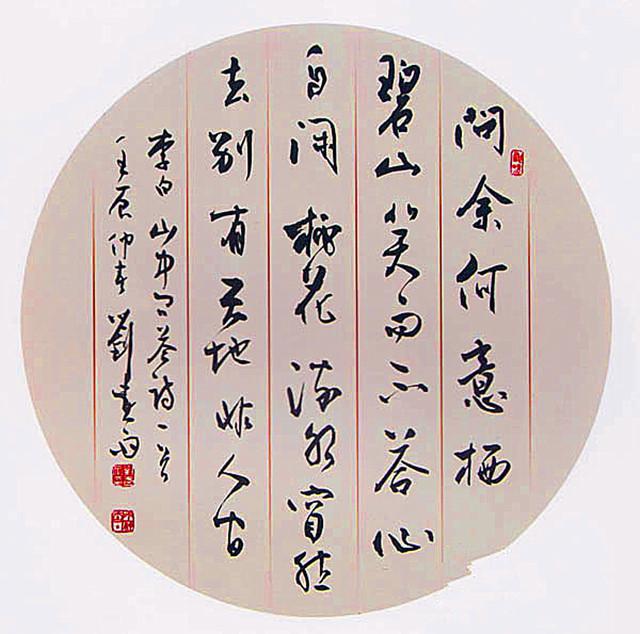 問余何意栖
碧山笑而不答心
自閑桃花流水窅然
去别有天地非人间
李白山中问答诗一首
壬辰仲春劉春雨